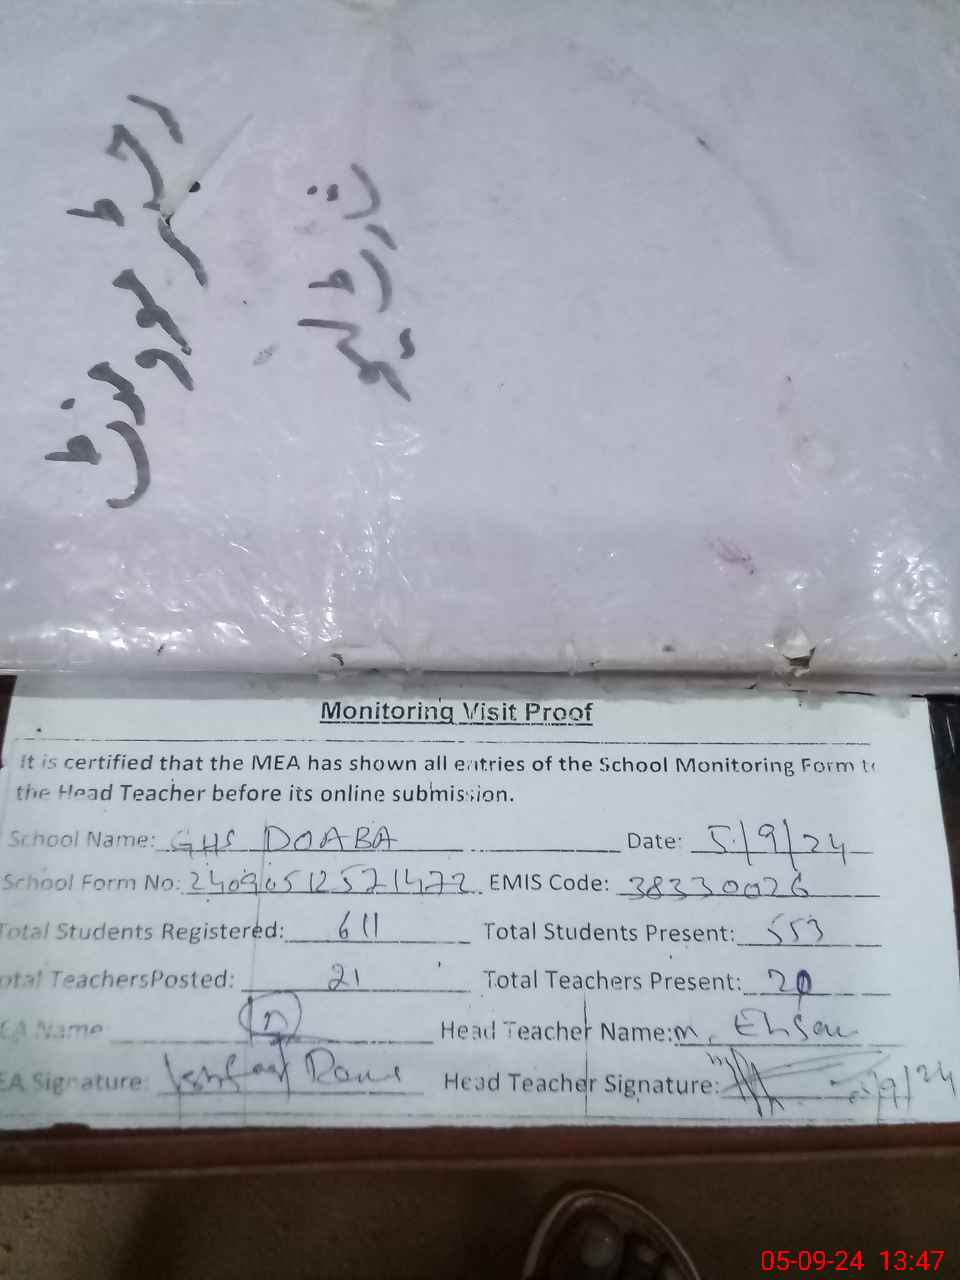 رجسٹر موومنٹ
Monitoring Visit Proof
It is certified that the MEA has shown all entries of the School Monitoring Form to
the Head Teacher before its online submission.
School Name: GHS DOABA Date: 5/9/24
School Form No: 24090512521472 EMIS Code: 38330026
Total Students Registered: 611 Total Students Present: 553
otal TeachersPosted: 21 Total Teachers Present: 20
EA Name Head Teacher Name: M. Ehsan
EA Signature: Head Teacher Signature: 5/9/24
05-09-24 13:47